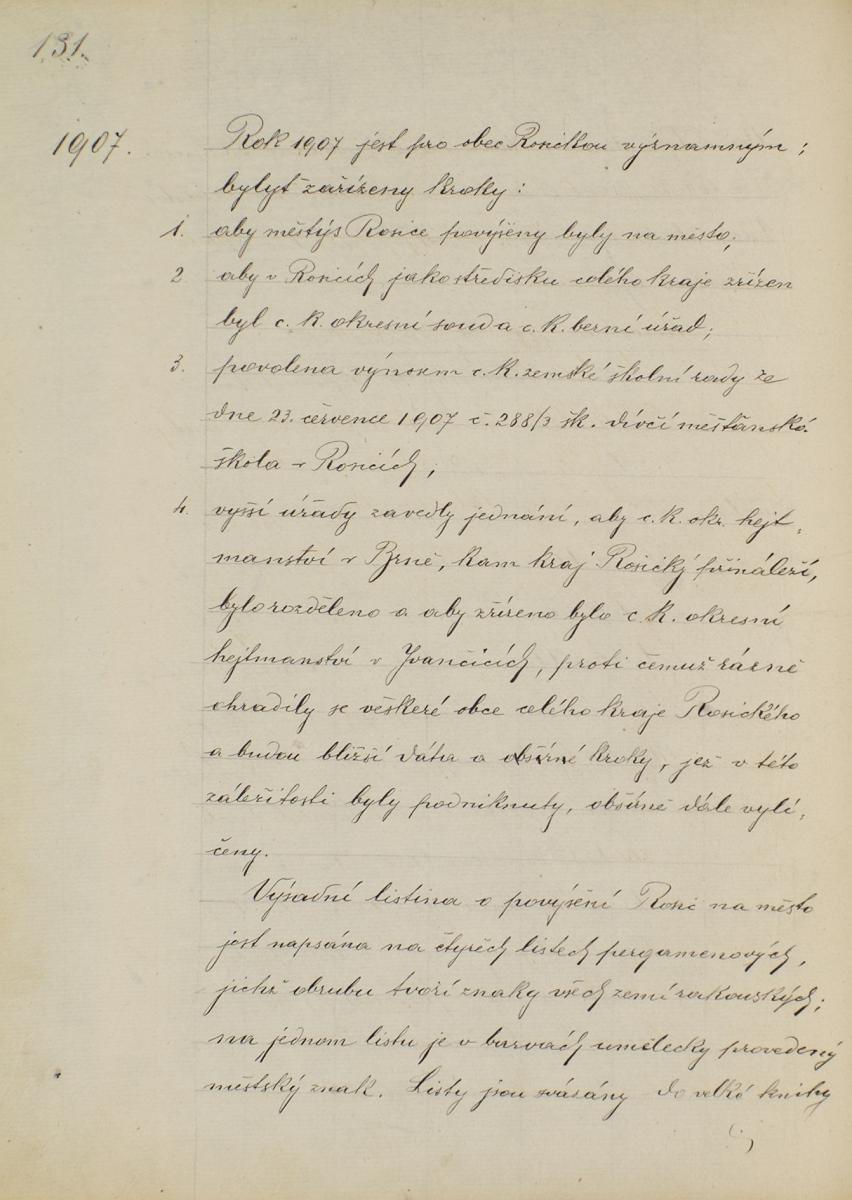 131.
1907. Rok 1907 jest pro obec Rosickou významným;
bylyť zařízeny kroky:
1. aby městýs Rosice povýšeny byly na město;
2 aby v Rosicích jako středisku celého kraje zřízen
byl c. k. okresní soud a c. k. berní úřad;
3. povolena výnosem c. k. zemské školní rady ze
dne 23. července 1907 č. 288/3 šk. dívčí měšťanská
škola v Rosicích;
4. vyšší úřady zavedly jednání, aby c. k. okr. hejt-
manství v Brně, kam kraj Rosický přináleží,
bylo rozděleno a aby zřízeno bylo c. k. okresní
hejtmanství v Ivančicích, proti čemuž rázně
ohradily se veškeré obce celého kraje Rosického
a budou bližší dáta a kroky, jež v této
záležitosti byly podniknuty, obšírně dále vylí-
čeny.
Výsadní listina o povýšení Rosic na město
jest napsána na čtyřech listech pergamenových,
jichž obrubu tvoří znaky všech zemí rakouských;
na jednom listu je v barvách umělecky provedený
městský znak. Listy jsou svázány do velké knihy